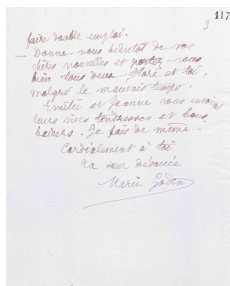 117
3
faire double emploi.
— Donne-nous bientôt de vos
chères nouvelles et portez-vous
bien tous deux, Floré et toi,
malgré le mauvais temps.
Emilie et Jeanne vous envoient
leurs vives tendresses et bons
baisers. Je fais de même.
Cordialement à toi
Ta sœur dévouée
Marie Godin